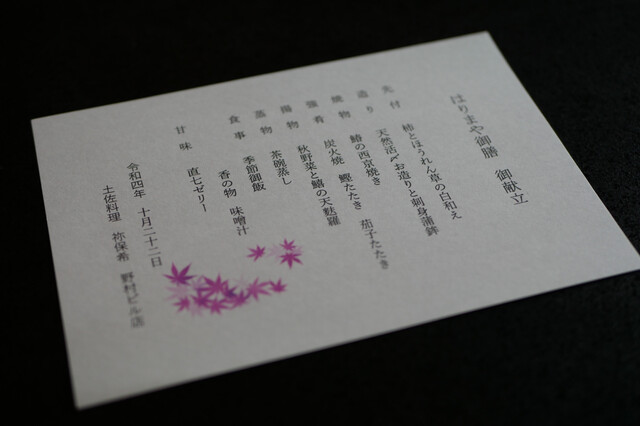 はりまや御膳　御献立
先付　柿とほうれん草の白和え
造り　天然活〆お造りと刺身蒲鉾
焼物　鰆の西京焼き
強肴　炭火焼　鰹たたき　茄子たたき
揚物　秋野菜と鱚の天麩羅
蒸物　茶碗蒸し
食事　季節御飯
香の物　味噌汁
甘味　直七ゼリー
令和四年　十月二十二日
土佐料理　祢保希　野村ビル店